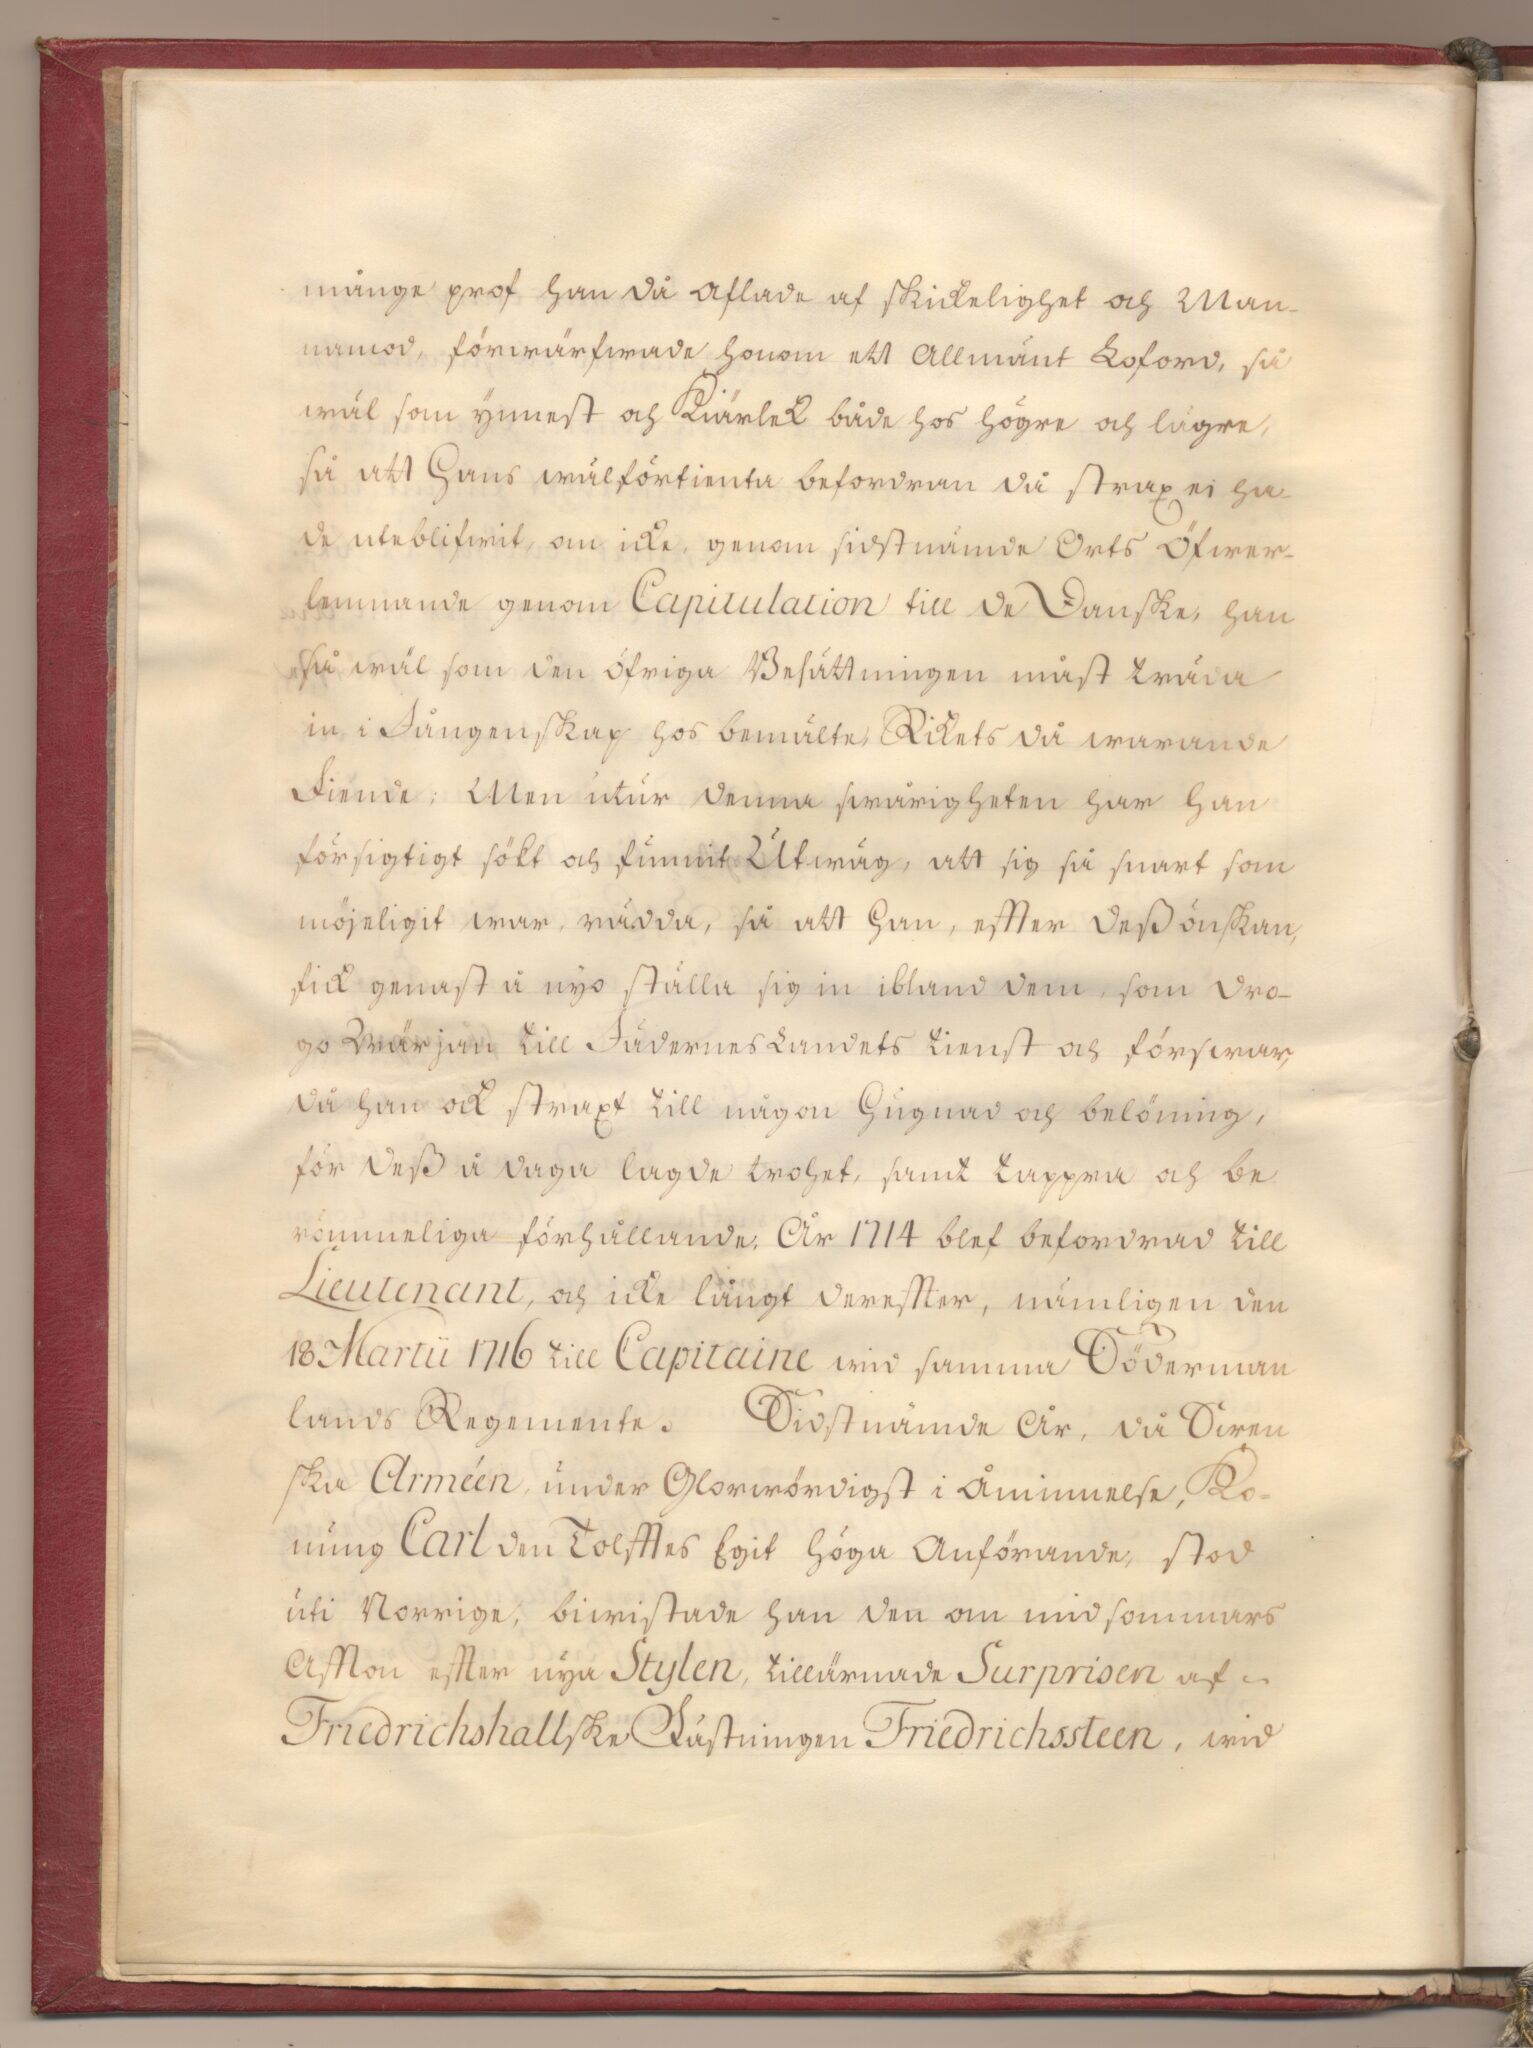 månge prof han då aflade af skickelighet och Man-
namod, förwärfwade honom ett Allmänt Loford, så
wäl som ynnest och Kiärlek både hos högre och lägre,
så att Hans wälförtienta befordran då strax ei ha-
de uteblifwit, om icke, genom sidstnämde Orts Öfwer-
lemnande genom Capitulation till de Danske, han
så wäl som den öfriga Besättningen måst träda
in i Fångenskap hos bemälte, Rikets då warande
Fiende; Men utur denna swårigheten har han
försigtigt sökt och funnit Utwäg, att sig så snart som
möjeligit war, rädda, så att Han, effter deß önskan,
fick genast å nyo ställa sig in ibland dem, som dro-
go Wärjan till FädernesLandets tienst och förswar,
då han ock straxt till någon Hugnad och belöning,
för deß å daga lagde trohet, samt tappra och be
römmeliga förhållande, År 1714 blef befordrad till
Lieutenant, och icke långt dereffter, nämligen den
18 Martii 1716 till Capitaine wid samma Söderman
lands Regemente. Sidstnämde År, då Swen
ska Arméen, under Glorwördigst i Åminnelse, Ko-
nung Carl den Tolfftes Egit höga Anförande, stod
uti Norrige, biwistade han den om midsommars
Affton effter nya Stylen, tillärnade Surprisen af
Friedrichshallske Fästningen Friedrichssteen, wid